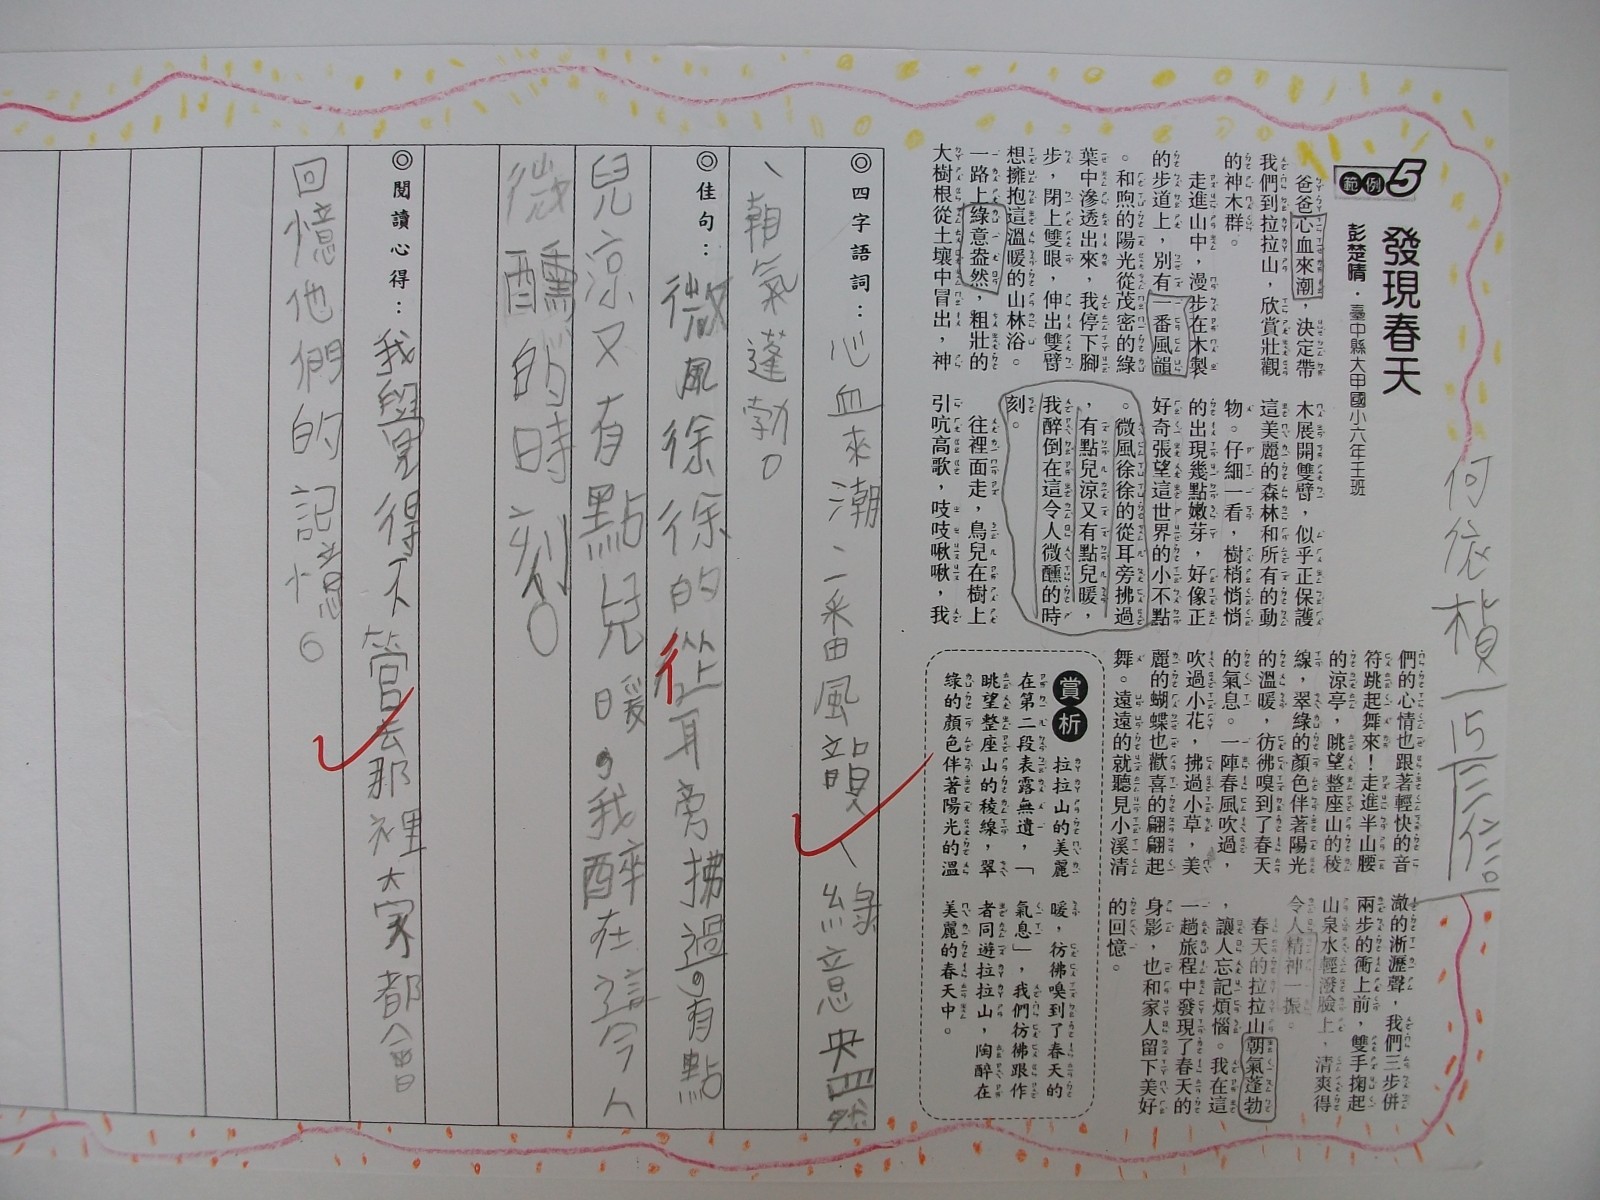 範例5
發現春天
彭楚晴・臺中縣大甲國小六年壬班
爸爸心血來潮，決定帶
我們到拉拉山，欣賞壯觀
的神木群。
走進山中，漫步在木製
的步道上，別有一番風韻
。和煦的陽光從茂密的綠
葉中滲透出來，我停下腳
步，閉上雙眼，伸出雙臂
想擁抱這溫暖的山林浴。
一路上綠意盎然，粗壯的
大樹根從土壤中冒出，神
木展開雙臂，似乎正保護
這美麗的森林和所有的動
物。仔細一看，樹梢悄悄
的出現幾點嫩芽，好像正
好奇張望這世界的小不點
。微風徐徐的從耳旁拂過
，有點兒涼又有點兒暖，
我醉倒在這令人微醺的時
刻。
往裡面走，鳥兒在樹上
引吭高歌，吱吱啾啾，我
們的心情也跟著輕快的音
符跳起舞來！走進半山腰
的涼亭，眺望整座山的稜
線，翠綠的顏色伴著陽光
的溫暖，彷彿嗅到了春天
的氣息。一陣春風吹過，
吹過小花，拂過小草，美
麗的蝴蝶也歡喜的翩翩起
舞。遠遠的就聽見小溪清
澈的淅瀝聲，我們三步併
兩步的衝上前，雙手掬起
山泉水輕潑臉上，清爽得
令人精神一振。
春天的拉拉山朝氣蓬勃
，讓人忘記煩惱。我在這
一趟旅程中發現了春天的
身影，也和家人留下美好
的回憶。
賞析
拉拉山的美麗
在第二段表露無遺，「
眺望整座山的稜線，翠
綠的顏色伴著陽光的溫
暖，彷彿嗅到了春天的
氣息」，我們彷彿跟作
者同遊拉拉山，陶醉在
美麗的春天中。
◎四字語詞：心血來潮、一番風韻、綠意盎然
、朝氣蓬勃。
◎佳句：微風徐徐的從耳旁拂過，有點
兒涼又有點兒暖，我醉在這令人
微醺的時刻。
◎閱讀心得：我覺得不管去那裡大家都會
回憶他們的記憶。